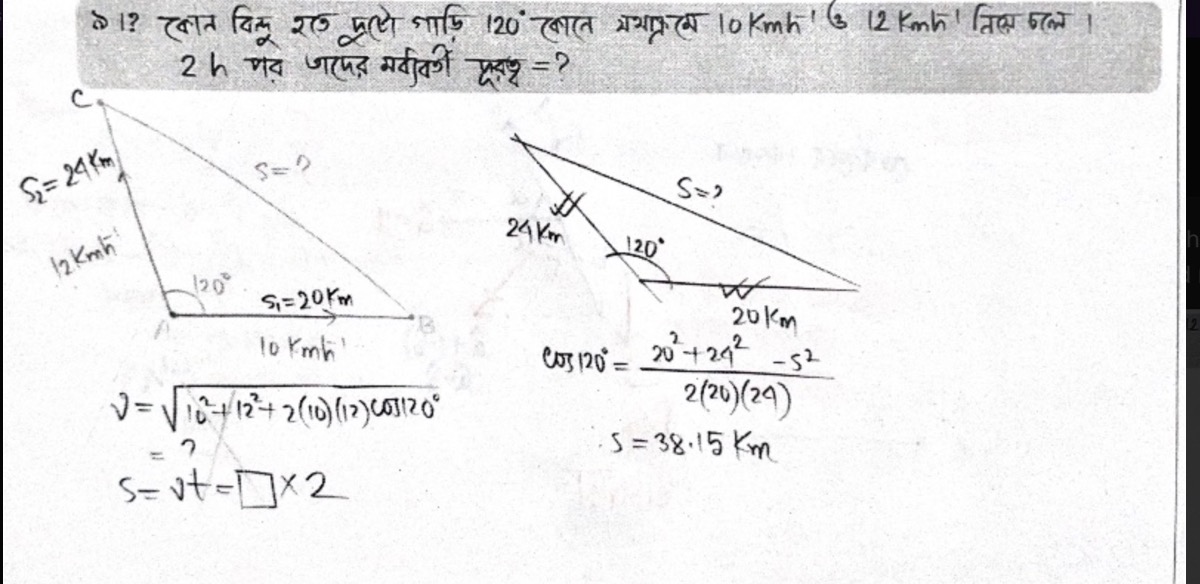 ১? কোন বিন্দু হতে দুটো গাড়ি 120° কোনে যথাক্রমে 10 Kmh⁻¹ ও 12 Kmh⁻¹ নিয়ে চলে ।
2 h পর তাদের মধ্যবর্তী দূরত্ব = ?
C
S₂ = 24 Km
S = ?
12 Kmh⁻¹
120°
S₁ = 20 Km
A
B
10 Kmh⁻¹
v = √10² + 12² + 2(10)(12)cos120°
= ?
S = vt = □ × 2
S = ?
24 Km
120°
20 Km
cos 120° = 20² + 24² - s² / 2(20)(24)
S = 38.15 Km